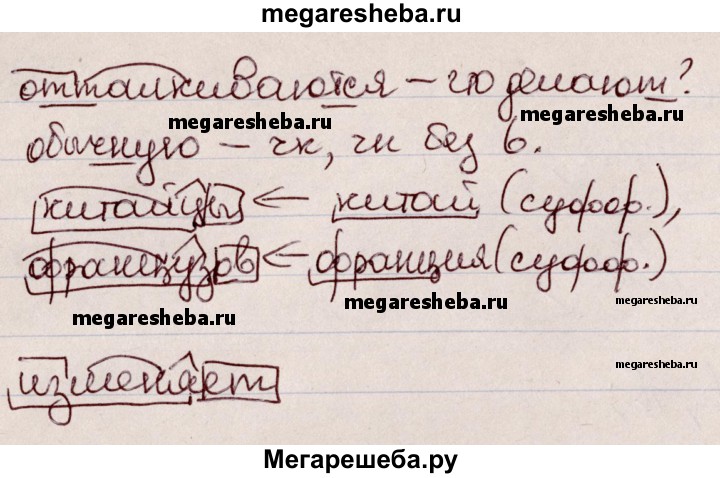 megaresheba.ru
отталкиваются – что делают?
megaresheba.ru
megaresheba.ru
обычную – чк, чн без ь.
megaresheba.ru
китайцы ← китай (суфф.),
французов ← франция (суфф.)
megaresheba.ru
megaresheba.ru
megaresheba.ru
изменяет
megaresheba.ru
Мегарешеба.ру